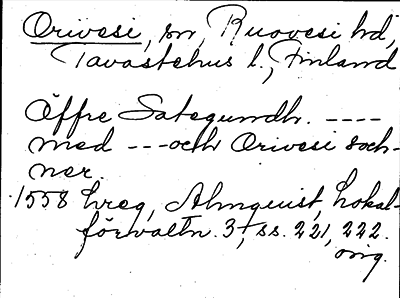 Orivesi, sn, Ruovesi hd,
Tavastehus l., Finland
Öffre Satagundh. ----
med ---och Orivesi sock-
ner.
1558 hreg, Almquist, Lokal-
förvaltn. 3, ss. 221, 222.
orig.